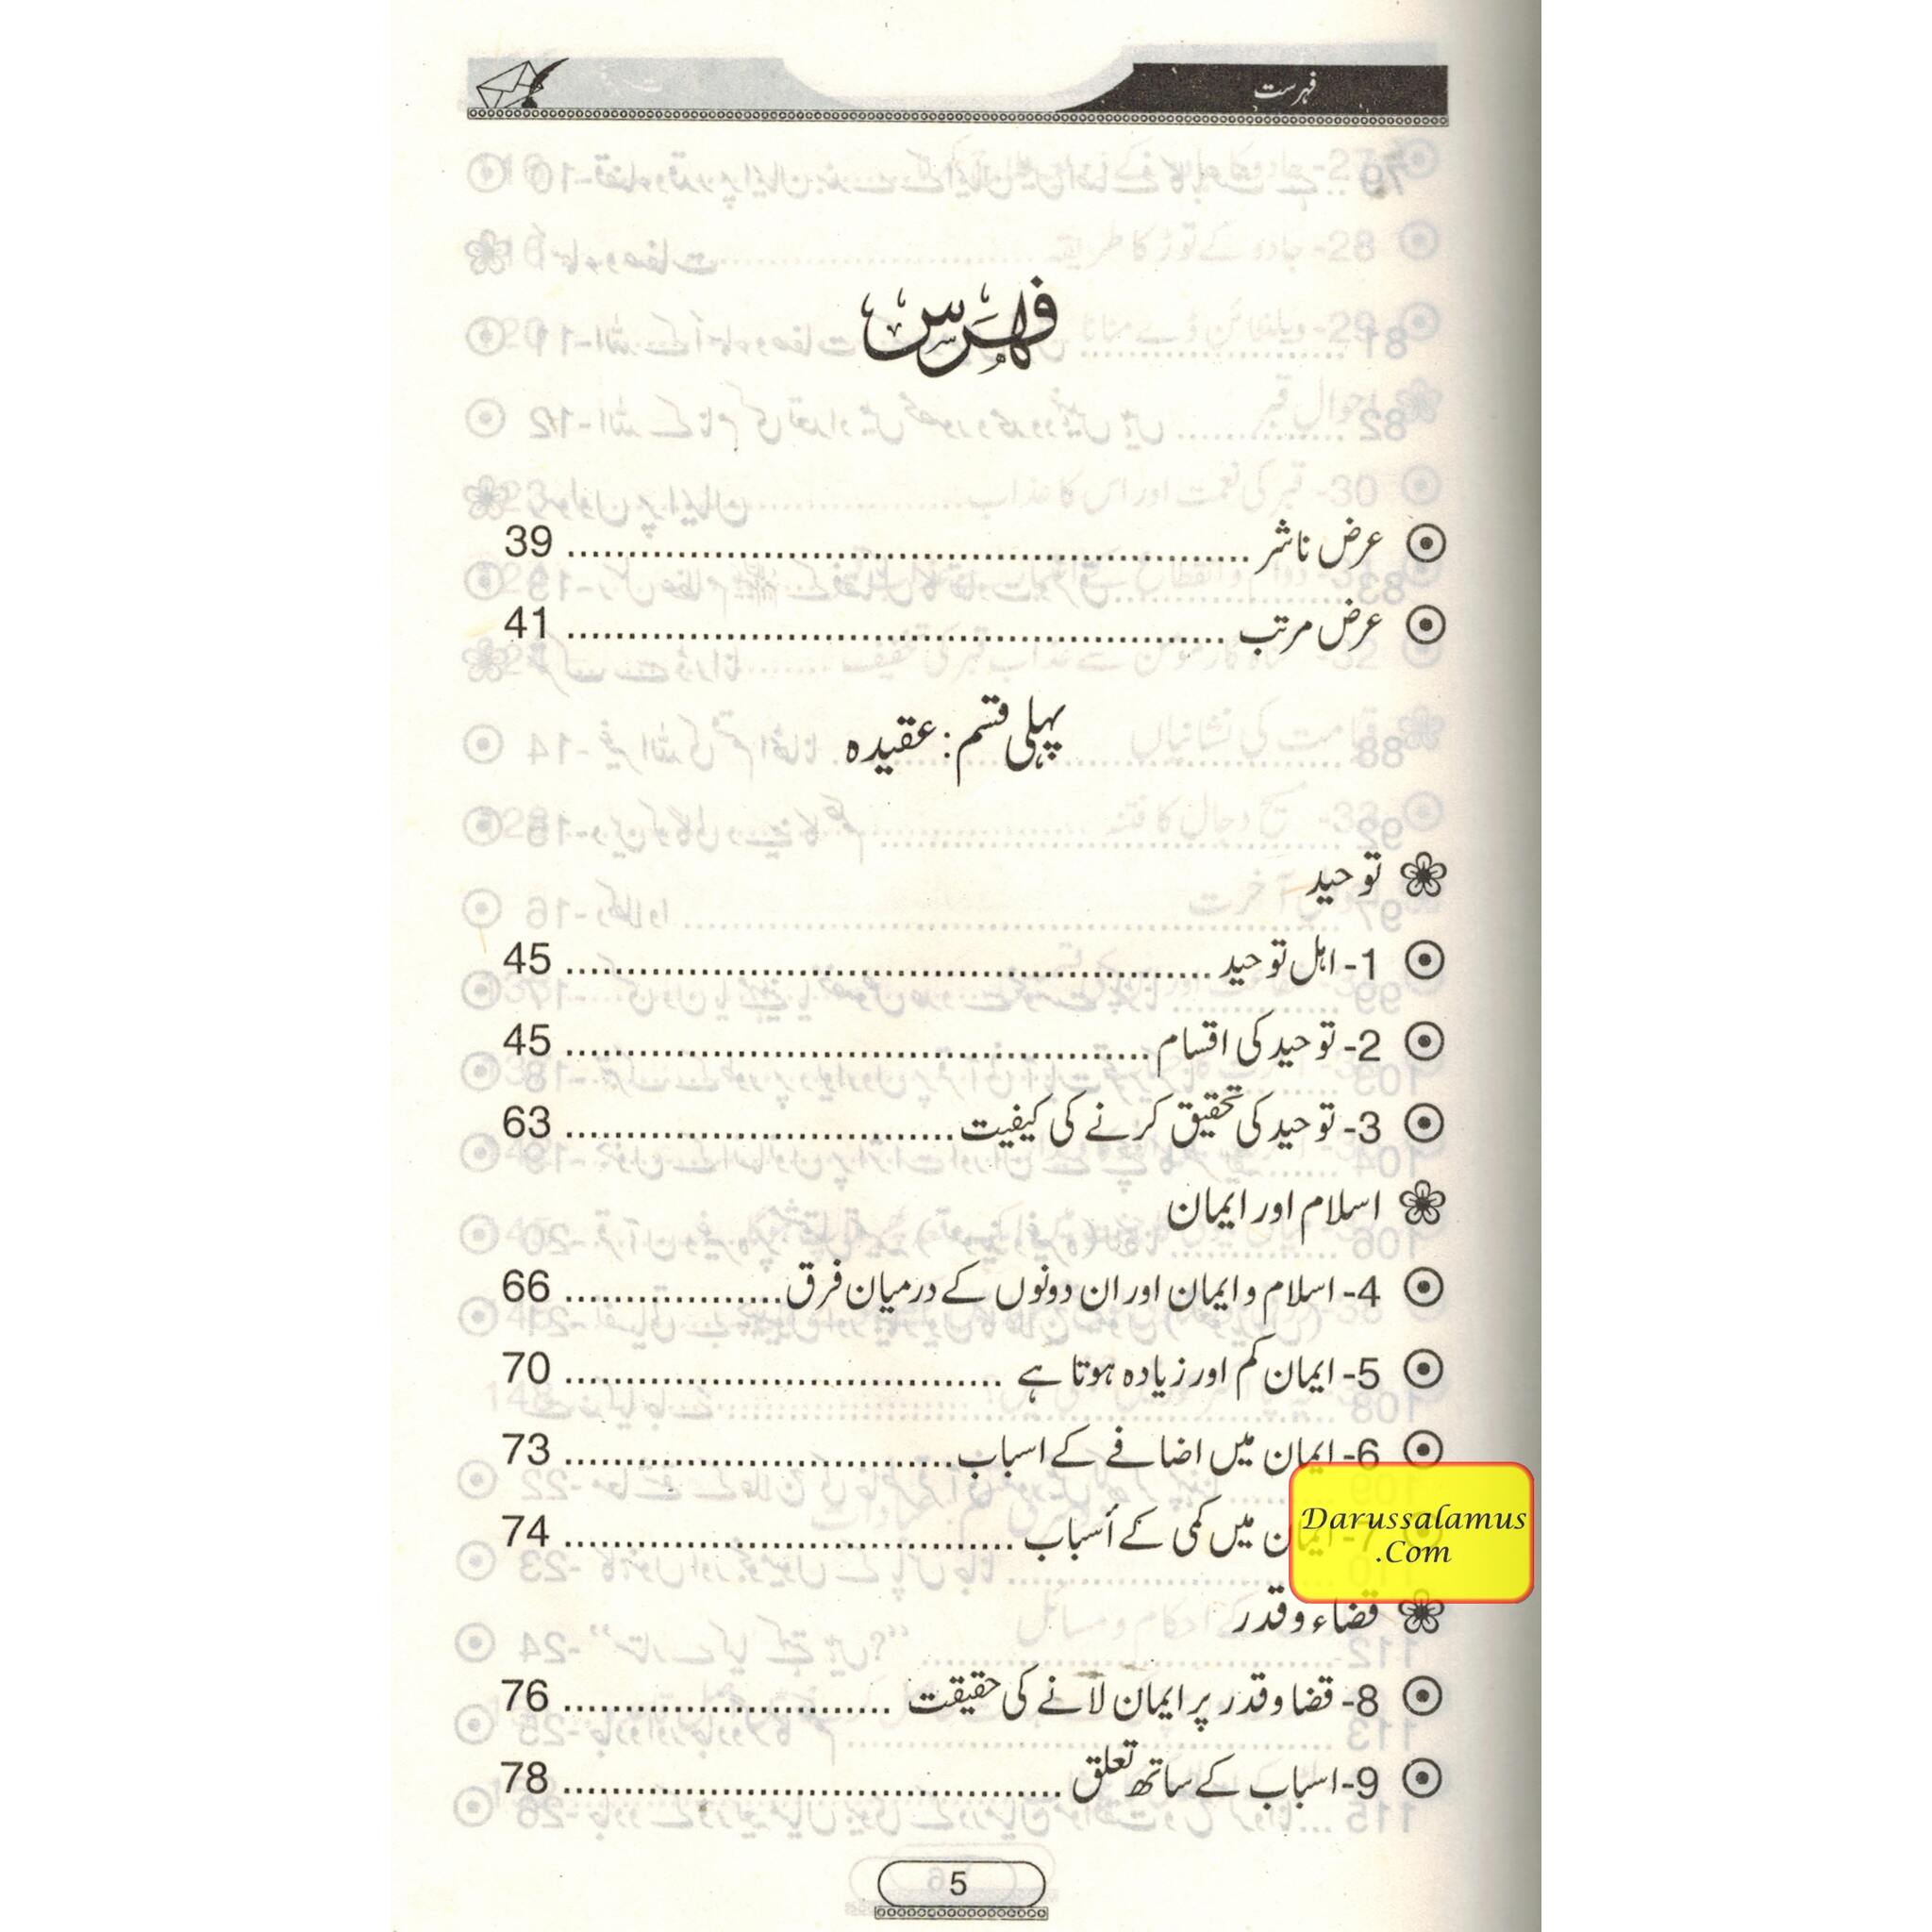 فہرست
فہرس
عرض ناشر ........ 39
عرض مرتب ........ 41
پہلی قسم: عقیدہ
توحید
1- اہل توحید ........ 45
2- توحید کی اقسام ........ 45
3- توحید کی تحقیق کرنے کی کیفیت ........ 63
اسلام اور ایمان
4- اسلام و ایمان اور ان دونوں کے درمیان فرق ........ 66
5- ایمان کم اور زیادہ ہوتا ہے ........ 70
6- ایمان میں اضافے کے اسباب ........ 73
7- ایمان میں کمی کے أسباب ........ 74
Darussalamus
.Com
قضاء و قدر
8- قضا و قدر پر ایمان لانے کی حقیقت ........ 76
9- اسباب کے ساتھ تعلق ........ 78
5